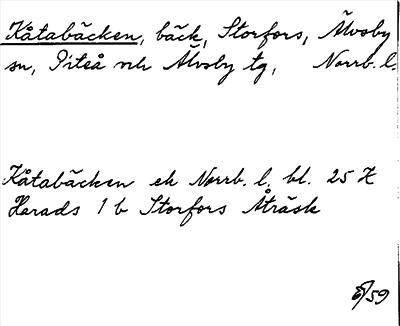 Kåtabäcken, bäck, Storfors, Älvsby
sn, Piteå och Älvsby tg, Norrb. l.
Kåtabäcken ek Norrb. l. bl. 25 H
Harads 1 b Storfors Åträsk
/59